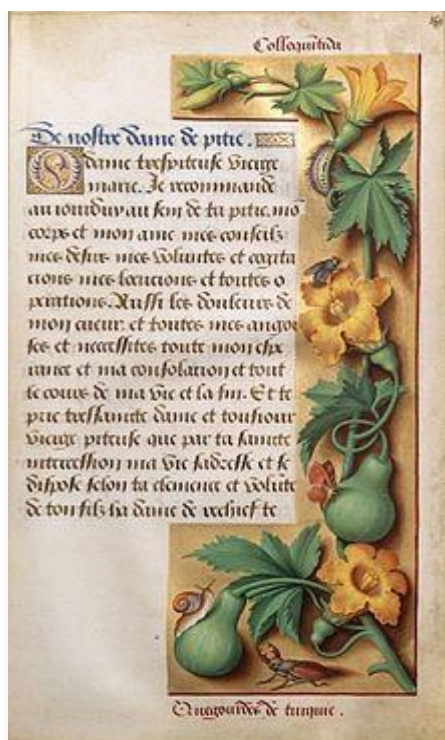 Colloquintida
De nostre dame de pitie.
O dame trespiteuse vierge
marie. Je recommande
au iourduy au sein de ta pitie. mō
corps et mon ame mes conseilz
mes desirs mes voluntes et cogita
cions mes locucions et toutes o
perations. Aussi les douleurs de
mon cueur. et toutes mes angois
ses et necessites toute mon espe
rance et ma consolation et tout
le cours de ma vie et la fin. Et te
prie tressaincte dame et tousiour
vierge piteuse que par ta saincte
intercession ma vie sadresse et se
dispose selon ta clemence et volūte
de ton filz ha dame de rechief te
Quegourdes de turquie.